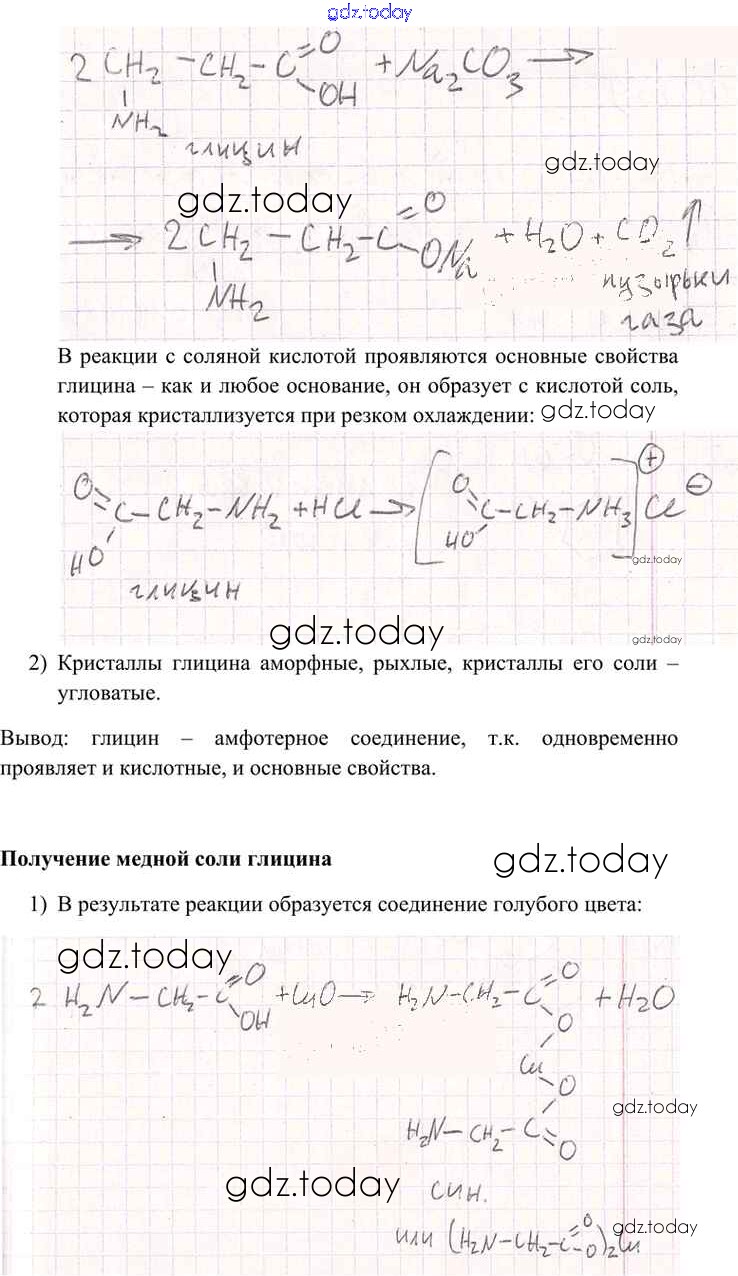 gdz.today
2 CH₂ – CH₂ – C =O + Na₂CO₃ ⟶
OH
NH₂
глицин
gdz.today
gdz.today
⟶ 2 CH₂ – CH₂ – C =O + H₂O + CO₂↑
ONa
NH₂
пузырьки
газа
В реакции с соляной кислотой проявляются основные свойства
глицина – как и любое основание, он образует с кислотой соль,
которая кристаллизуется при резком охлаждении: gdz.today
O= C – CH₂ – NH₂ + HCl ⟶ [O= C – CH₂ – NH₃]⊕ Cl⊖
HO HO
gdz.today
глицин
gdz.today gdz.today
2) Кристаллы глицина аморфные, рыхлые, кристаллы его соли –
угловатые.
Вывод: глицин – амфотерное соединение, т.к. одновременно
проявляет и кислотные, и основные свойства.
Получение медной соли глицина gdz.today
1) В результате реакции образуется соединение голубого цвета:
gdz.today
2 H₂N – CH₂ – C =O + CuO ⟶ H₂N – CH₂ – C =O + H₂O
OH O
Cu
O
gdz.today
H₂N – CH₂ – C =O
gdz.today син.
или (H₂N – CH₂ – C =O – O)₂Cu gdz.today